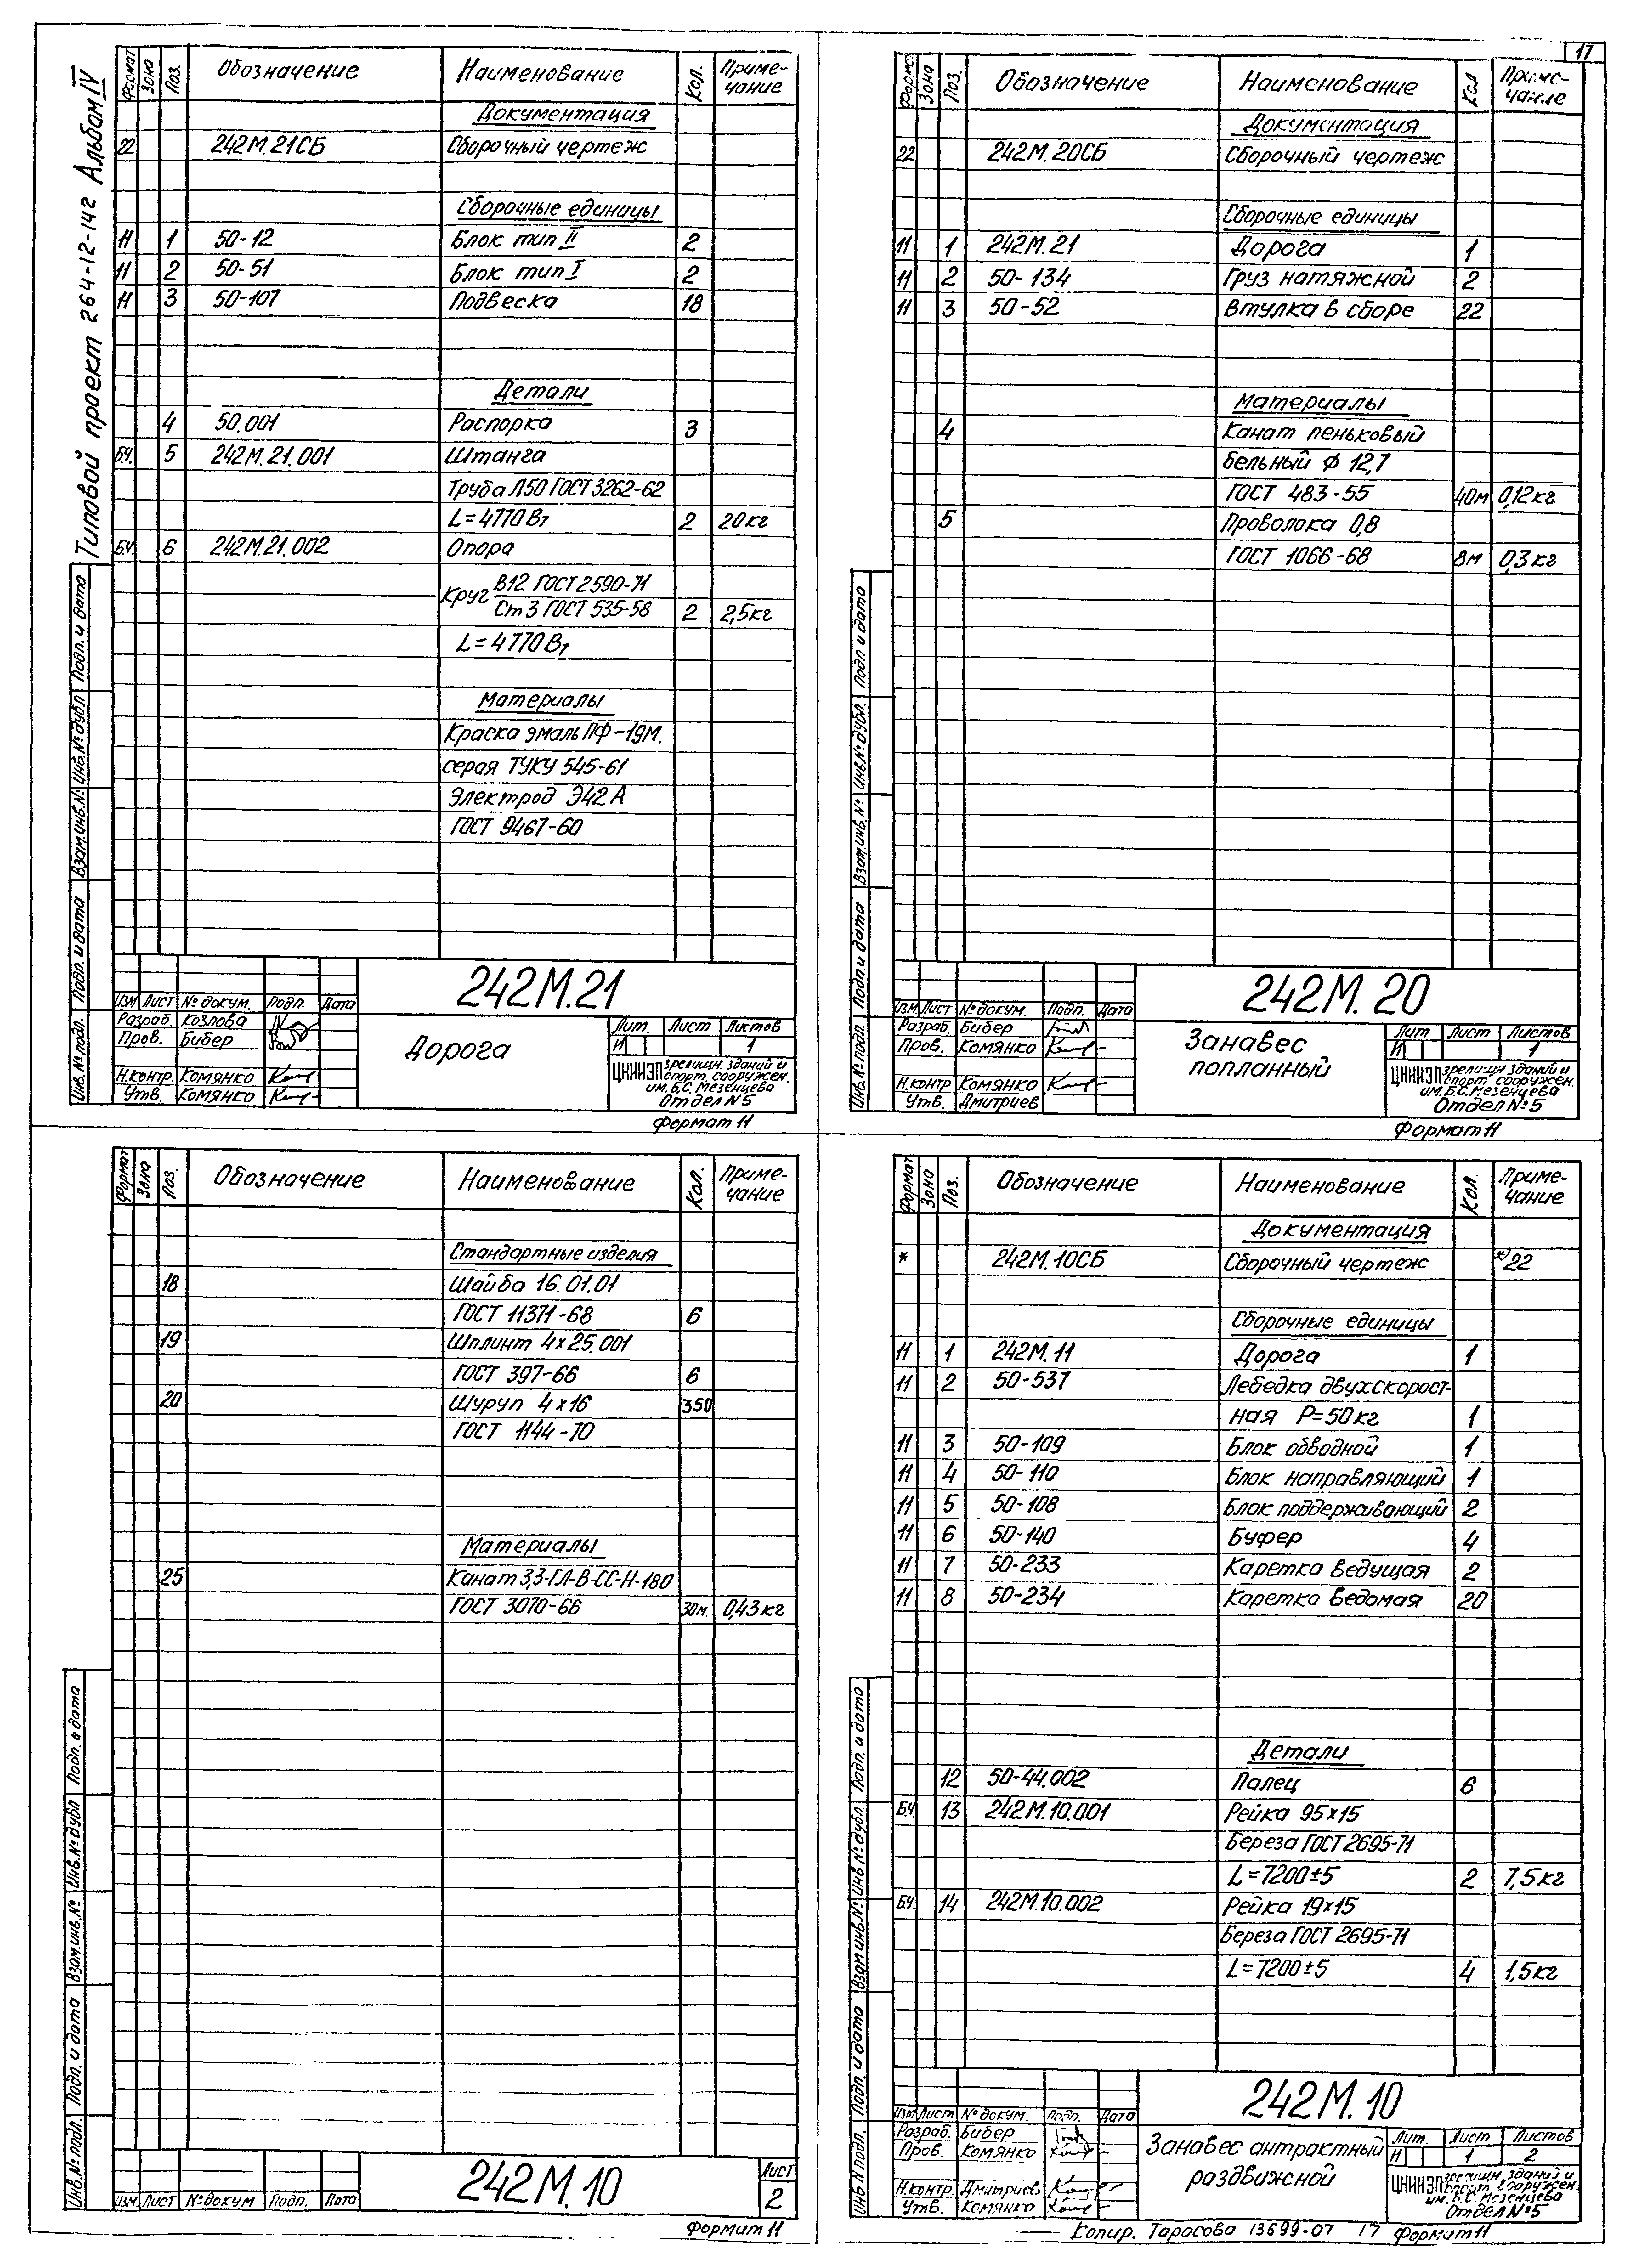 17
Типовой проект 264-12-142 Альбом IV
Формат Зона Поз. Обозначение Наименование Кол. Примечание
Документация
22 242М.21СБ Сборочный чертеж
Сборочные единицы
11 1 50-12 Блок тип II 2
11 2 50-51 Блок тип I 2
11 3 50-107 Подвеска 18
Детали
4 50.001 Распорка 3
Б.Ч. 5 242М.21.001 Штанга
Труба Л50 ГОСТ 3262-62
L=4770 В7 2 20кг
Б.Ч. 6 242М.21.002 Опора
Круг В12 ГОСТ 2590-71
Ст 3 ГОСТ 535-58 2 2,5кг
L=4770 В7
Материалы
Краска эмаль ПФ-19М.
серая ТУКУ 545-61
Электрод Э42А
ГОСТ 9467-60
Инв.№ подл. Подп. и дата Взам.инв.№ Инв.№ дубл Подп. и дата
242М.21
Изм Лист № докум. Подп. Дата
Разраб. Козлова
Пров. Бибер
Н.контр. Комянко
Утв. Комянко
Дорога
Лит. Лист Листов
И 1
ЦНИИЭП зрелищн. зданий и
спорт. сооружен.
им. Б.С. Мезенцева
Отдел N5
Формат 11
Формат Зона Поз. Обозначение Наименование Кол Примечание
Документация
22 242М.20СБ Сборочный чертеж
Сборочные единицы
11 1 242М.21 Дорога 1
11 2 50-134 Груз натяжной 2
11 3 50-52 Втулка в сборе 22
Материалы
4 Канат пеньковый
бельный ф 12,7
ГОСТ 483-55 40м 0,12кг
5 Проволока 0,8
ГОСТ 1066-68 8м 0,3кг
Инв.№ подл. Подп. и дата Взам.инв.№ Инв.№ дубл. Подп и дата
242М.20
Изм. Лист № докум. Подп. Дата
Разраб. Бибер
Пров. Комянко
Н.контр Комянко
Утв. Дмитриев
Занавес
попланный
Лит Лист Листов
И 1
ЦНИИЭП зрелищн зданий и
спорт сооружен.
им. Б.С. Мезенцева
Отдел №5
Формат 11
Формат Зона Поз. Обозначение Наименование Кол. Примечание
Стандартные изделия
18 Шайба 16.01.01
ГОСТ 11371-68 6
19 Шплинт 4х25.001
ГОСТ 397-66 6
20 Шуруп 4х16 350
ГОСТ 1144-70
Материалы
25 Канат 3,3-ГЛ-В-СС-Н-180
ГОСТ 3070-66 30м. 0,43кг
Инв.№ подл. Подп. и дата Взам.инв.№ Инв.№ дубл Подп. и дата
Изм. Лист № докум Подп. Дата
242М.10
Лист
2
Формат 11
Формат Зона Поз. Обозначение Наименование Кол. Примечание
Документация
* 242М.10СБ Сборочный чертеж *) 22
Сборочные единицы
11 1 242М.11 Дорога 1
11 2 50-537 Лебедка двухскорост-
ная Р=50кг 1
11 3 50-109 Блок обводной 1
11 4 50-110 Блок направляющий 1
11 5 50-108 Блок поддерживающий 2
11 6 50-140 Буфер 4
11 7 50-233 Каретка ведущая 2
11 8 50-234 Каретка ведомая 20
Детали
12 50-44.002 Палец 6
Б.Ч. 13 242М.10.001 Рейка 95х15
Береза ГОСТ 2695-71
L=7200±5 2 7,5кг
Б.Ч. 14 242М.10.002 Рейка 19х15
Береза ГОСТ 2695-71
L=7200±5 4 1,5кг
Инв.N подл. Подп. и дата Взам инв.№ Инв № дубл. Подп. и дата
242М.10
Изм Лист № докум. Подп. Дата
Разраб. Бибер
Пров. Комянко
Н.контр. Дмитриев
Утв. Комянко
Занавес антрактный
раздвижной
Лит. Лист Листов
И 1 2
ЦНИИЭП зрелищн. зданий и
спорт. сооружен.
им. Б.С. Мезенцева
Отдел №5
Копир. Тарасова 13699-07 17 Формат 11